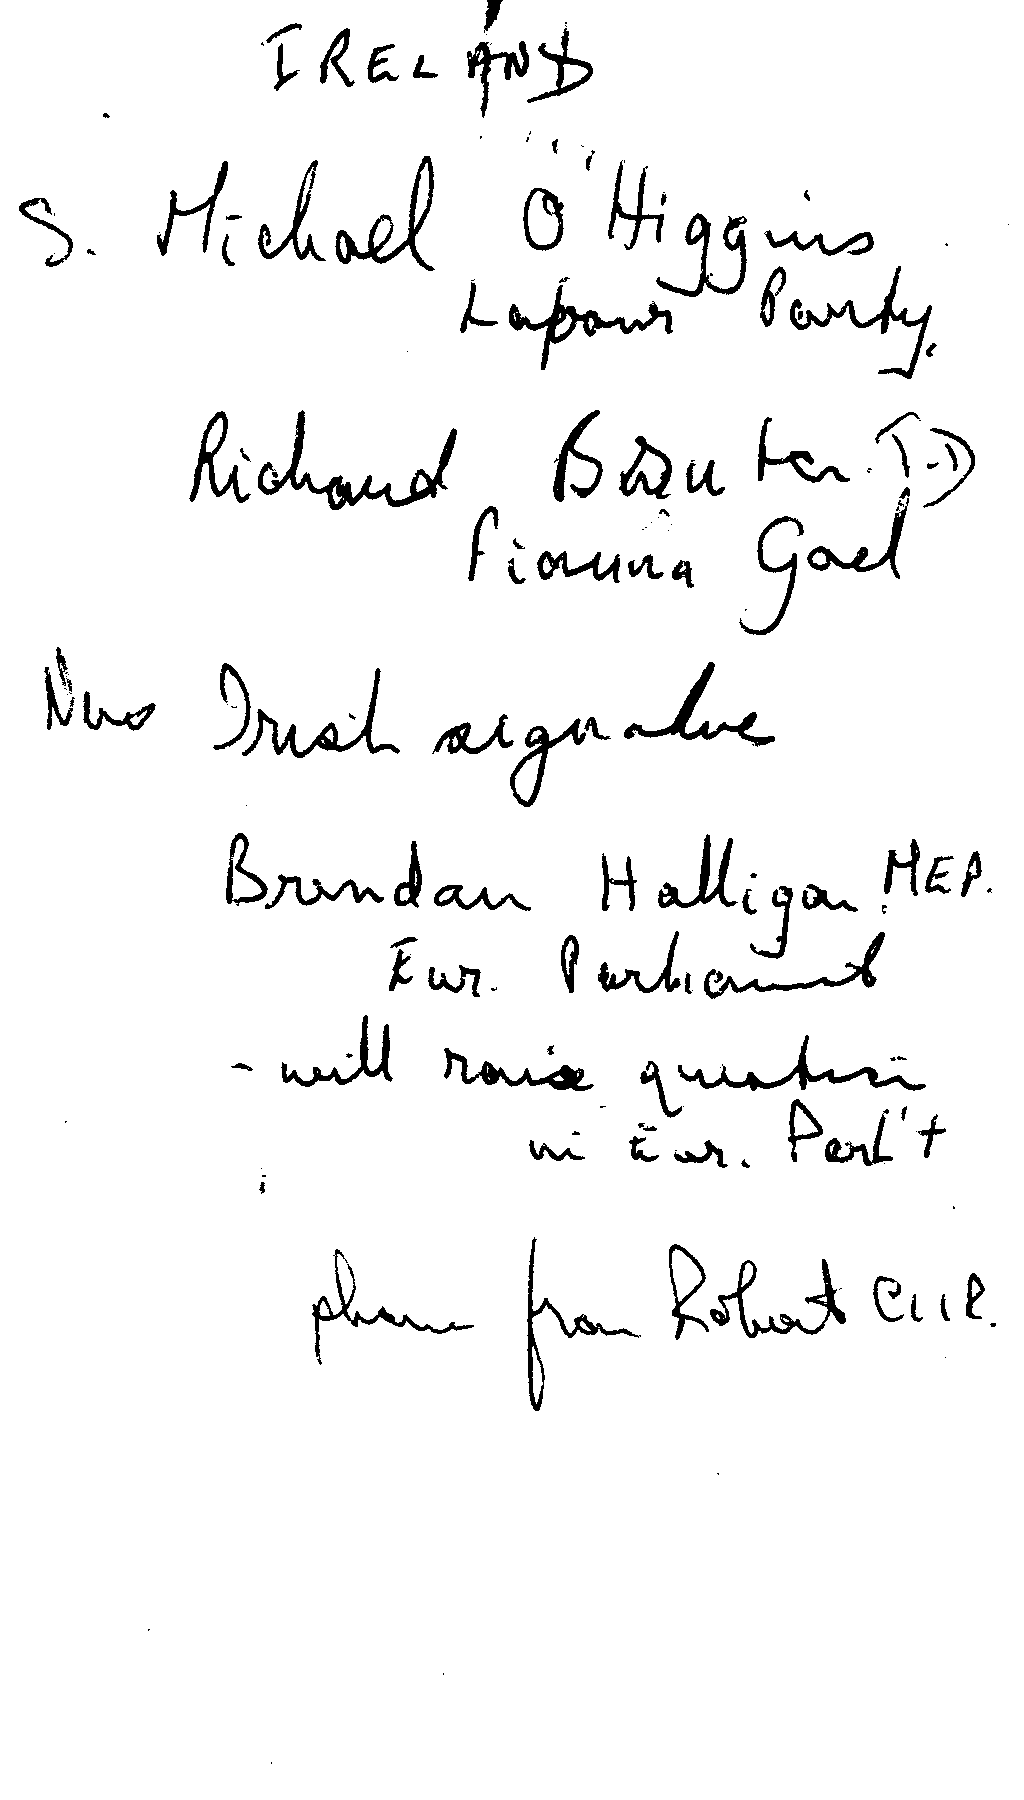 IRELAND
S. Michael O'Higgins
Labour Party.
Richard Bruter T.D
Fianna Gael
New Irish signature
Brendan Halligan MEP.
Eur. Parliament
- will raise question
in Eur. Parl't
phone from Robert CIIR.